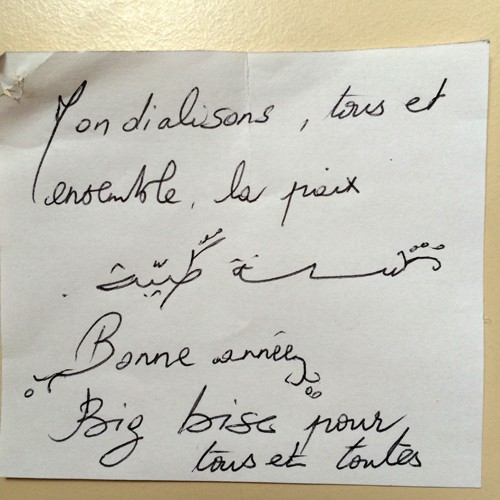 Mondialisons, tous et
ensemble, la paix
سنة طيّبة
Bonne année
Big bise pour
tous et toutes